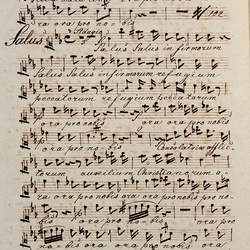 ora ora pro no - bis
Salus Adagio Salus Salus in firmorum
Salus Salus in firmorum refugium
peccatorum refugium peccatorum
ora pro nobis ora ora pro nobis
ora pro nobis Consolatrix afflic
torum auxilium Christianorum o-
ra ora pro nobis ora ora pro nobis pro no-
bis ora pro nobis ora pro
no - bis ora ora pro no - bis